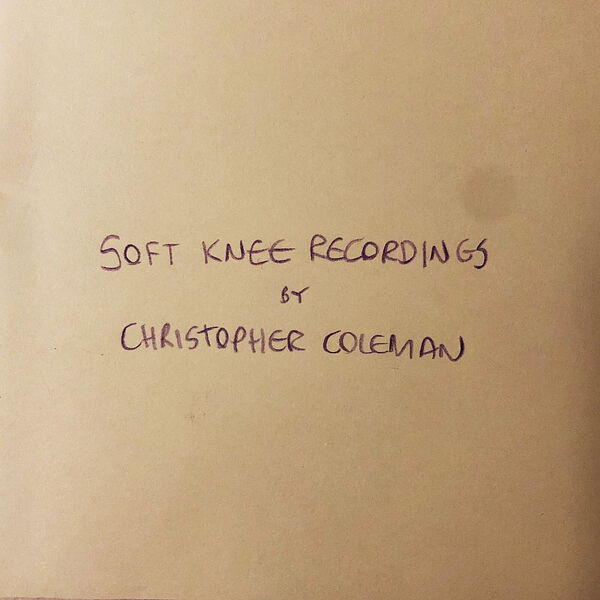 SOFT KNEE RECORDINGS
BY
CHRISTOPHER COLEMAN